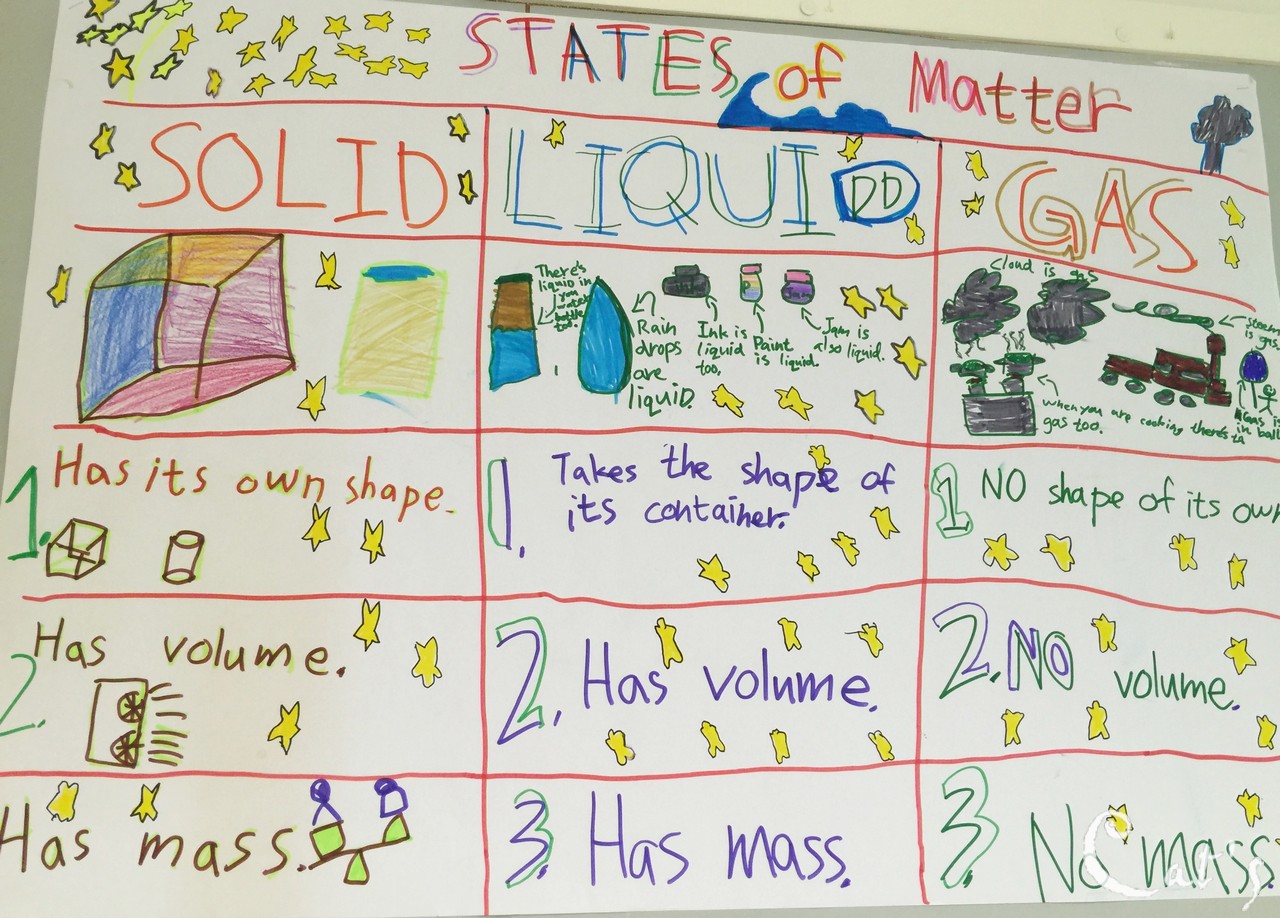 STATES of Matter
SOLID
LIQUIDD
GAS
There's
liquid in
you
water
bottle
too.
Rain
drops
are
liquid.
Ink is
liquid
too,
Paint
is liquid.
Jam is
also liquid.
Cloud is gas
steem
is gas
when you are cooking there's
gas too.
Gas is
in ball
1. Has its own shape.
1. Takes the shape of
its container.
1 NO shape of its own
2. Has volume.
2. Has volume.
2. NO volume.
Has mass.
3. Has mass.
3. No mass.
Cat's